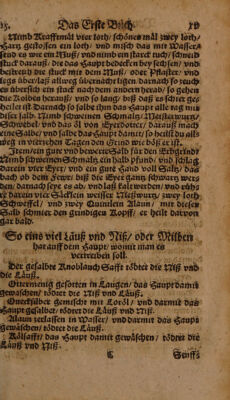 Das Erste Buch
Nimb Kraffemäl vier loth/ schönes mäl zwey loth/
Hartz gestossen ein loth/ und misch das mit Wasser/
send es wie ein Muß/ und nimb ein starck tuch/ schneid
stuck darauß/ die das Haupt bedecken bey sechsen/ und
bestreich die stuck mit dem Muß/ oder Pflaster/ und
legs uberlast allweg übernächt ligen darnach so reuch
es übersich ein stuck nach dem andern herab/ so gehen
die Kolben herauß/ und so lang/ biß daß es schier ge-
heilet ist. Darnach so salbe ihm das Haupt alle tag mit
diser salb. Nimb schweinen Schmaltz/ Niesswurtz/
Schwebel/ und das öl von Eyerdotter/ darauß mach
eine Salbe/ und salbe das Haupt damit/ so heilet es als-
weg in viertzehen Tagen den Grind wie böß er ist.
Item/ ein gute und bewerte Salb für den Erbgrind/
Nimb schweinen Schmaltz ein halb pfund/ und schlag
darein vier Eyer/ und ein gute Hand voll Saltz/ das
bach ob dem Fewr biß die Eyer gantz schwartz wer-
den/ darnach seye es ab/ und laß kalt werden/ und rühr
darein vier Löffeln weisser Niesswurtz/ zwey loth
Schweffel/ und zwey Quintlein Alaun/ mit dieser
Salb schmier den grindigen Kopff/ er heilt darvon
gar bald.
So eine viel Läuß und Niß/ oder Milben
hat auff dem Haupt/ womit man es
vertreiben soll.
Der gesalbte Knoblauch Safft tödtet die Niß und
die Läuß.
Quermenig gesotten in Laugen/ das Haupt damit
gewaschen/ tödtet die Niß und Läuß.
Quecksilber gemischt mit Loröl/ und darmit das
Haupt gesalbet/ tödtet die Niß und Läuß.
Alaun zerlassen in Wasser/ und darmit das Haupt
gewaschen/ tödtet die Niß und Läuß.
Kölsafft/ das Haupt damit gewaschen/ tödtet die
Läuß und Niß.
C